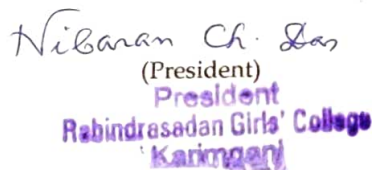 Nibaran Ch. Das
(President)
President
Rabindrasadan Girls' College
Karimganj